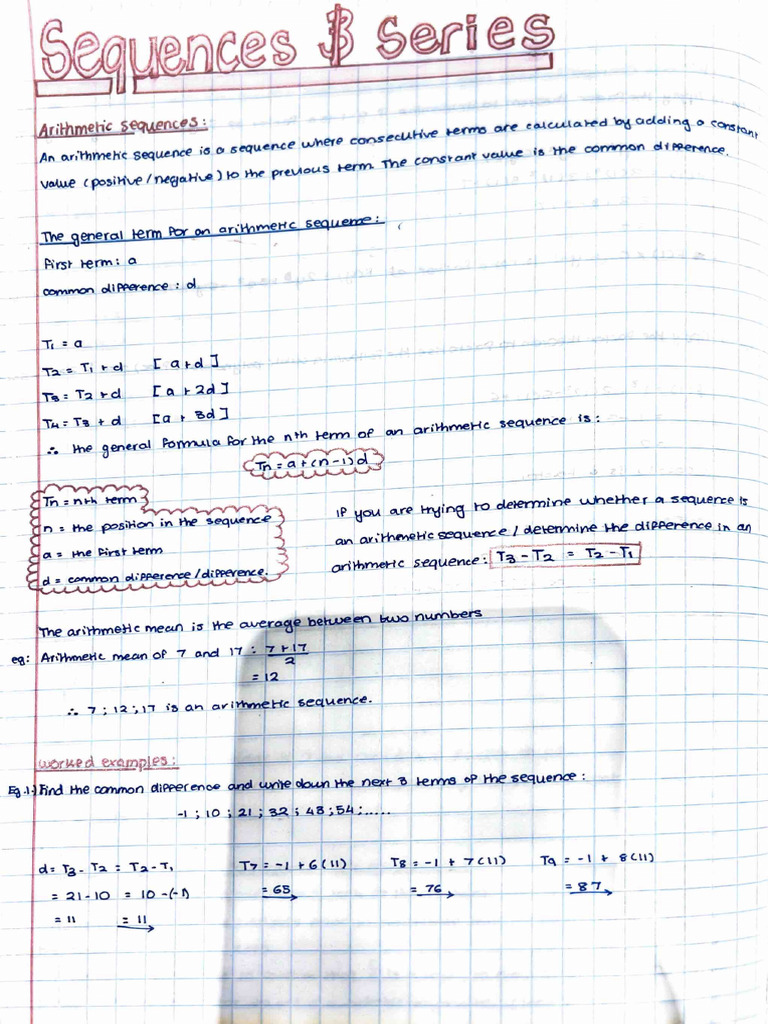 Sequences & Series
Arithmetic sequences:
An arithmetic sequence is a sequence where consecutive terms are calculated by adding a constant
value (positive/negative) to the previous term. The constant value is the common difference.
The general term for an arithmetic sequence:
First term: a
common difference: d
T₁ = a
T₂ = T₁ + d [a+d]
T₃ = T₂ + d [a + 2d]
T₄ = T₃ + d [a + 3d]
∴ the general formula for the nth term of an arithmetic sequence is:
Tn = a + (n-1)d
Tn = nth term
n = the position in the sequence
a = the first term
d = common difference/difference.
If you are trying to determine whether a sequence is
an arithemetic sequence / determine the difference in an
arithmetic sequence: T₃ - T₂ = T₂ - T₁
The arithmetic mean is the average between two numbers
eg: Arithmetic mean of 7 and 17 : 7+17/2
= 12
∴ 7 ; 12 ; 17 is an arithmetic sequence.
worked examples:
Eg.1.) Find the common difference and write down the next 3 terms of the sequence:
-1 ; 10 ; 21 ; 32 ; 43 ; 54 ; .....
d = T₃ - T₂ = T₂ - T₁ T₇ = -1 + 6(11) T₈ = -1 + 7(11) T₉ = -1 + 8(11)
= 21 - 10 = 10 - (-1) = 65 = 76 = 87
= 11 = 11